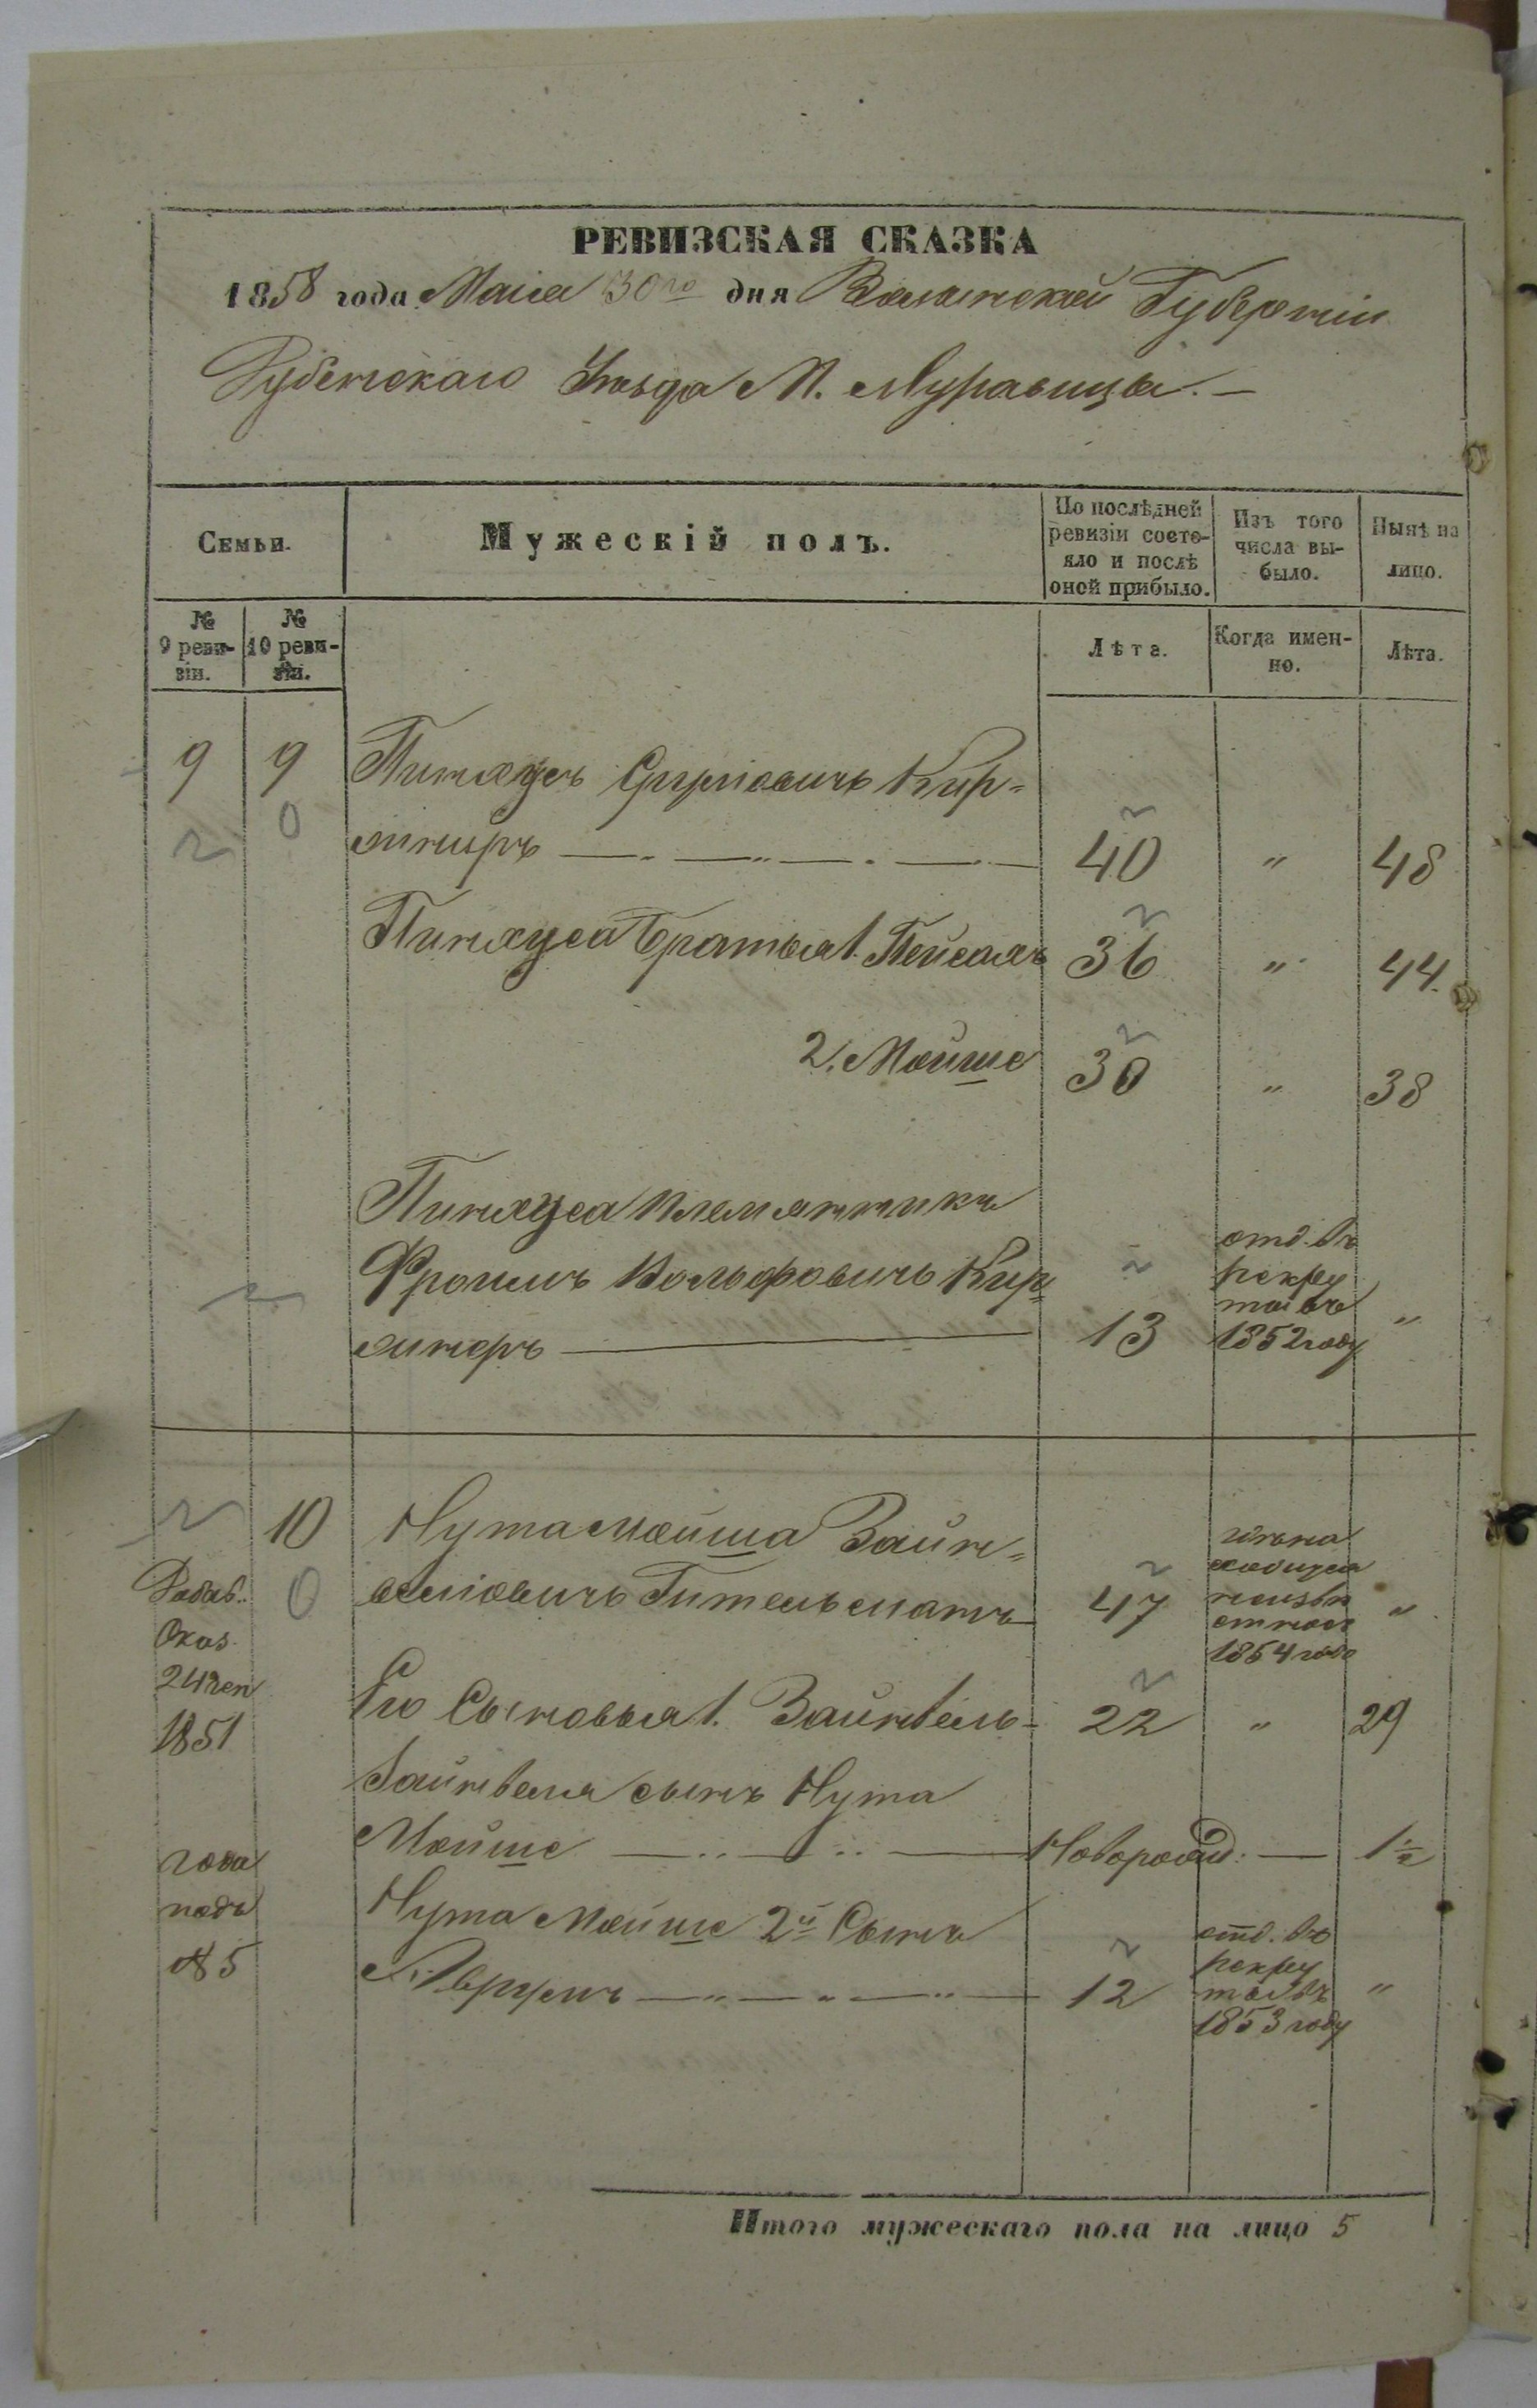 РЕВИЗСКАЯ СКАЗКА
1858 года Маія 30го дня Волынской Губерніи
Дубенскаго Уѣзда М. Муравицы. —
Семьи.
Мужескій полъ.
По послѣдней ревизіи состояло и послѣ оной прибыло.
Изъ того числа выбыло.
Нынѣ на лицо.
№ 9 ревизіи.
№ 10 ревизіи.
Лѣта.
Когда именно.
Лѣта.
9 9 Пинхусъ Сруліовичъ Кир-
линиръ 40 „ 48
Пинхуса братья 1. Пейсахъ 36 „ 44.
2. Мойше 30 „ 38
Пинхуса племянникъ
Фроимъ Вольфовичъ Кир-
линеръ 13 отд. въ рекруты въ 1852 году „
10 Нута Мойша Зайн-
веліовичъ Гительманъ 47 1854 года „
Его Сыновья 1. Зайнвель 22 „ 29
Зайнвеля сынъ Нута
Мойше Новорожд. — 1½
Нута Мойше 2й Сынъ
Аврумъ 12 отд. въ рекруты въ 1853 году „
Добав.
Указ.
24
1851
года
подъ
№ 5
Итого мужескаго пола на лицо 5